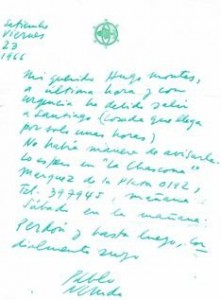 Setiembre
Viernes
23
1966
Mi querido Hugo Montes,
a última hora y con
urgencia he debido salir
a Santiago (Comida que llega
por solo unas horas)
No había manera de avisarle.
Lo espero en "La Chascona"
Marquez de la Plata 0192,
Tel. 397945, mañana
Sábado en la mañana.
Perdón y hasta luego, cor
dialmente suyo
Pablo
Neruda